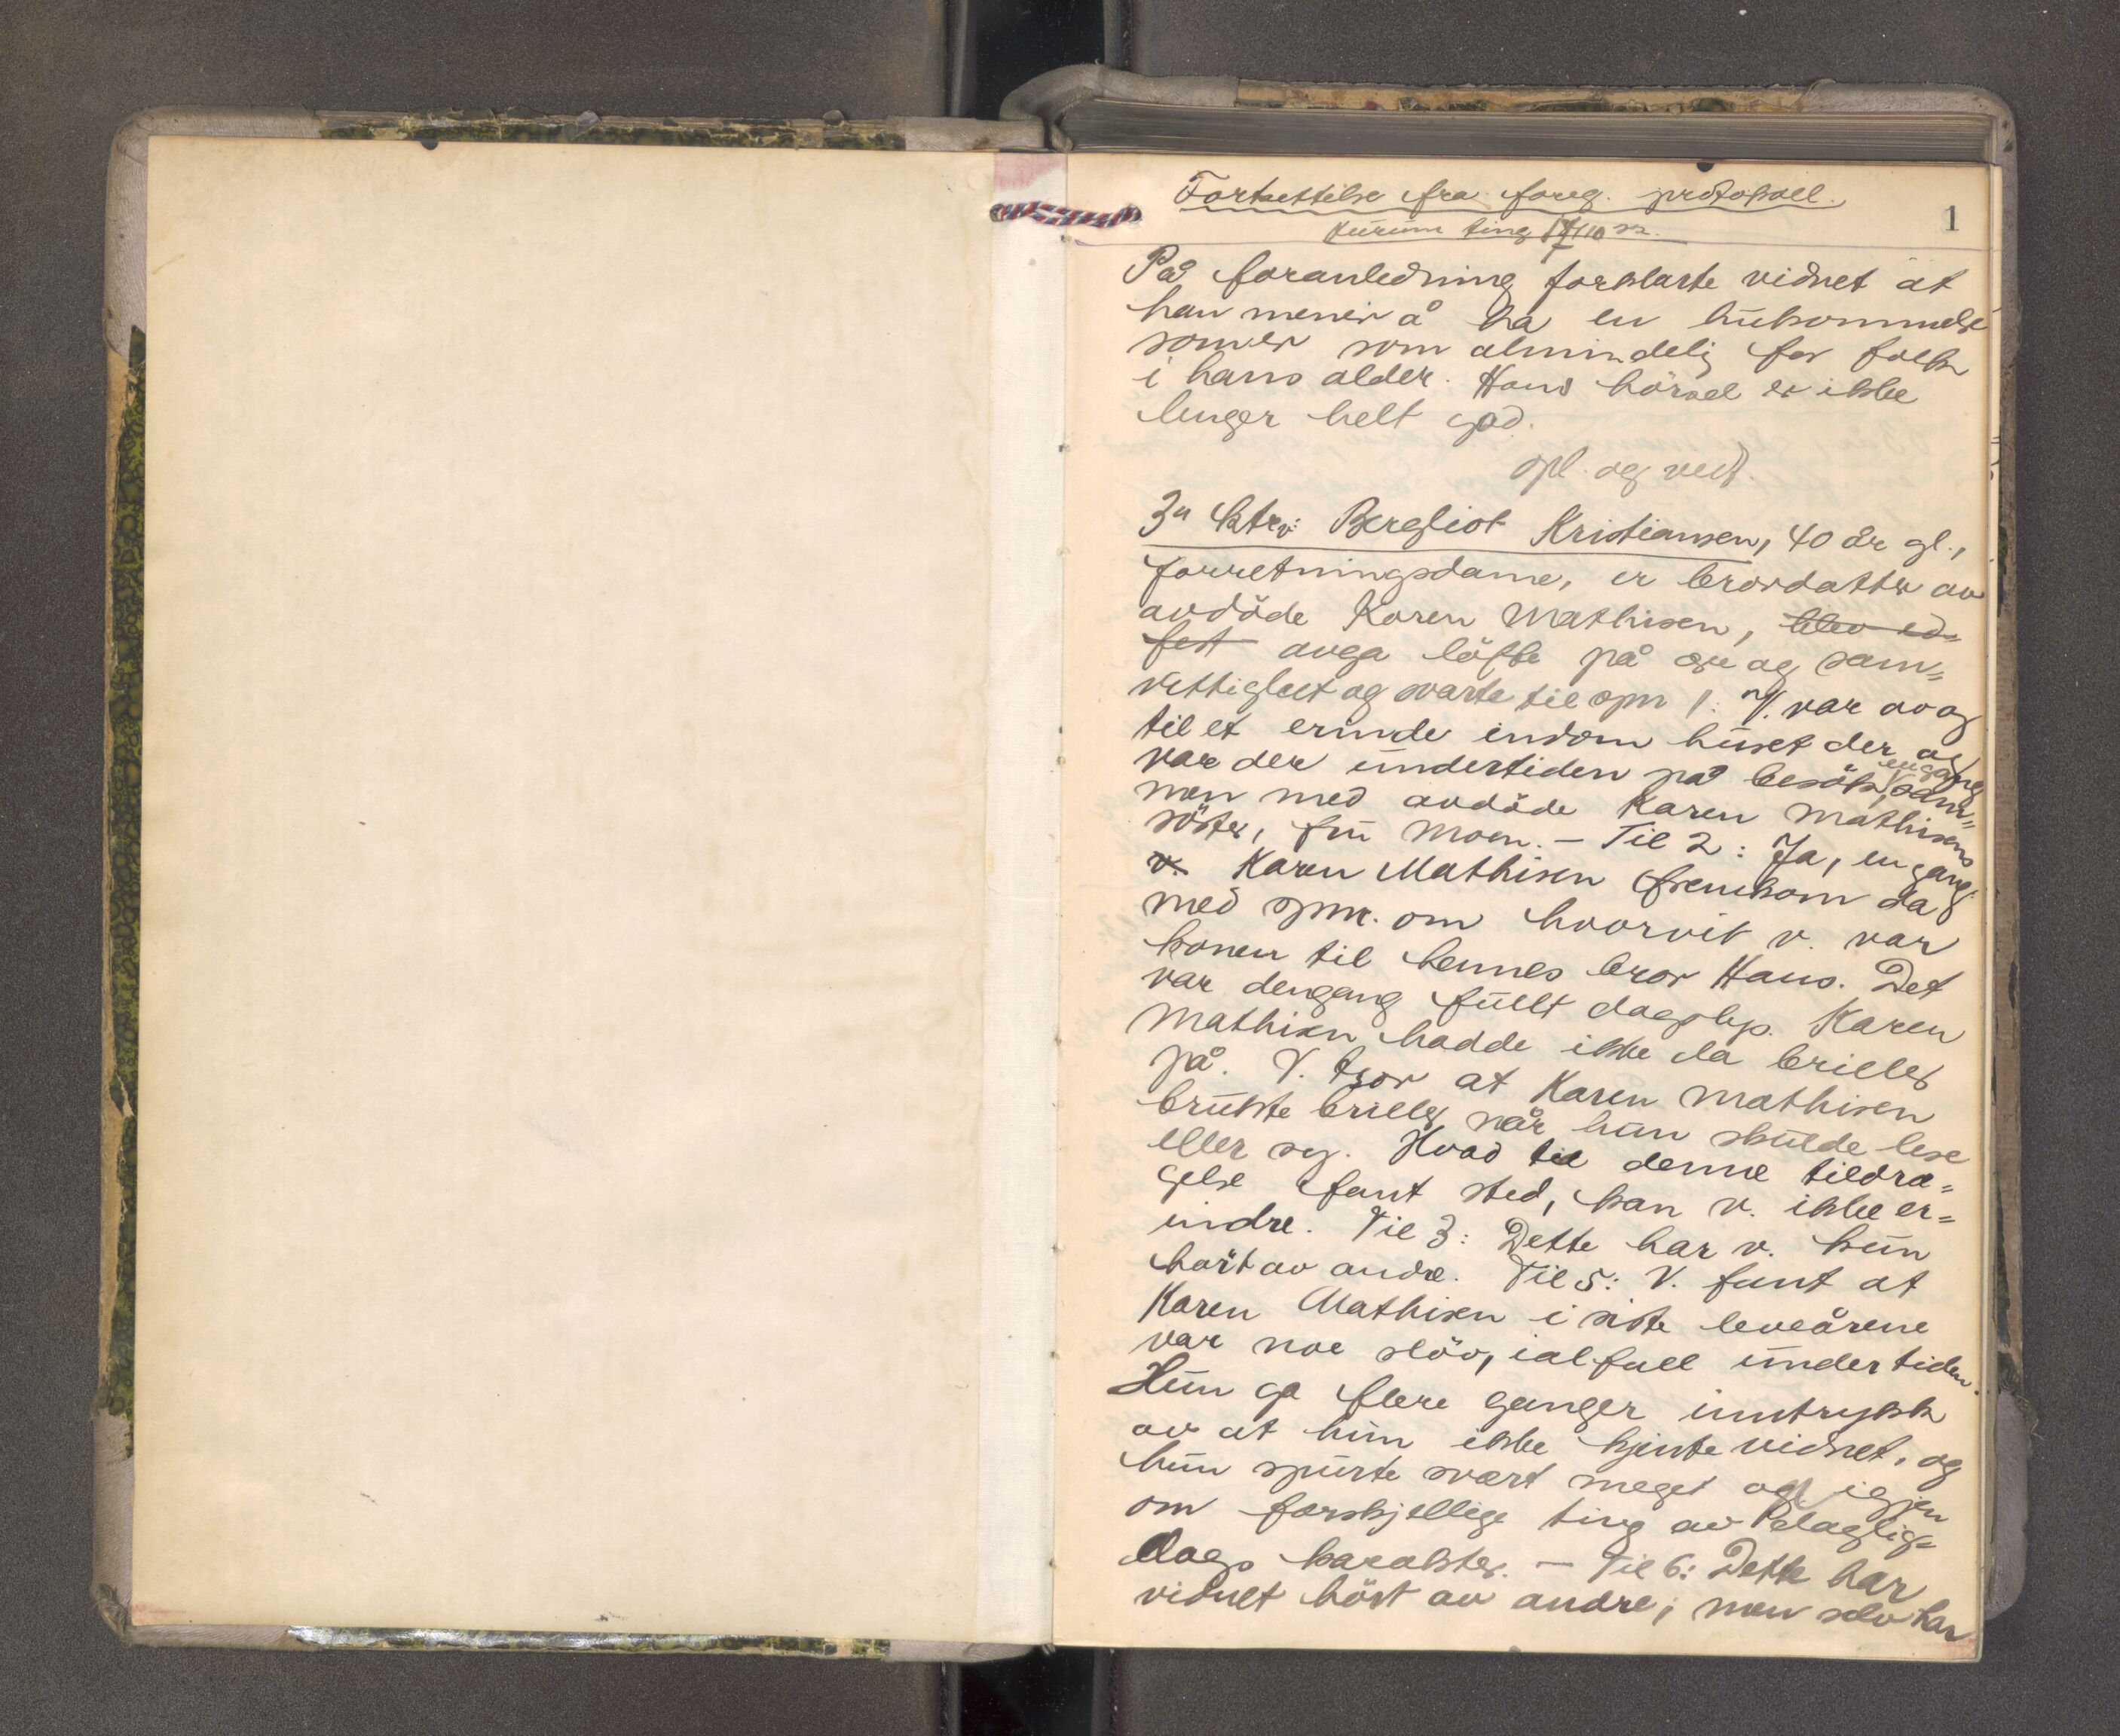 Fortsettelse fra foreg. protokoll.
1
På foranledning forklarte vidnet at
han mener å ha en hukommelse
som er som almindelig for folk
i hans alder. Hans hörsel er ikke
lenger helt god.
opl. og vedt.
3. ktrv: Bergliot Kristiansen, 40 år gl.,
forretningsdame, er brordatter av
avdöde Karen Mathisen, blev ed-
fest avga löfte på ære og sam-
vittighet og svarte til spm 1: V. var av og
til et erinde innom huset der og
var der undertiden på besök, engang sam-
men med avdöde Karen Mathisens
söster, fru Moen. - Til 2: Ja, en gang.
v. Karen Mathisen fremkom da
med spm. om hvorvit v. var
konen til hennes bror Hans. Det
var dengang fullt dagslys. Karen
Mathisen hadde ikke da briller
på. V. tror at Karen Mathisen
brukte briller når hun skulde lese
eller sy. Hvad tid denne tildra-
gelse fant sted, kan v. ikke er-
indre. Til 3: Dette har v. kun
hört av andre. Til 5: V. fant at
Karen Mathisen i siste leveårene
var noe slöv, ialfall undertiden.
Hun ga flere ganger inntrykk
av at hun ikke kjente vidnet, og
hun spurte svært meget og igjen
om forskjellige ting av daglig-
dags karakter. - Til 6: Dette har
vidnet hört av andre; men selv har